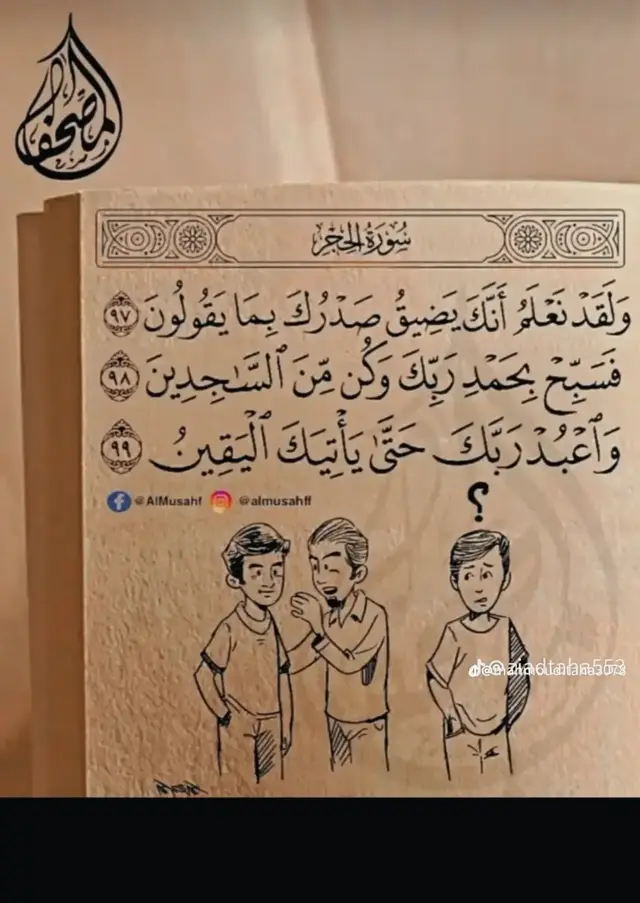 المصحف
سُورَةُ الحِجْر
وَلَقَدْ نَعْلَمُ أَنَّكَ يَضِيقُ صَدْرُكَ بِمَا يَقُولُونَ ٩٧
فَسَبِّحْ بِحَمْدِ رَبِّكَ وَكُن مِّنَ ٱلسَّـٰجِدِينَ ٩٨
وَٱعْبُدْ رَبَّكَ حَتَّىٰ يَأْتِيَكَ ٱلْيَقِينُ ٩٩
@AlMusahf @almusahff
؟
@ziadtaha553